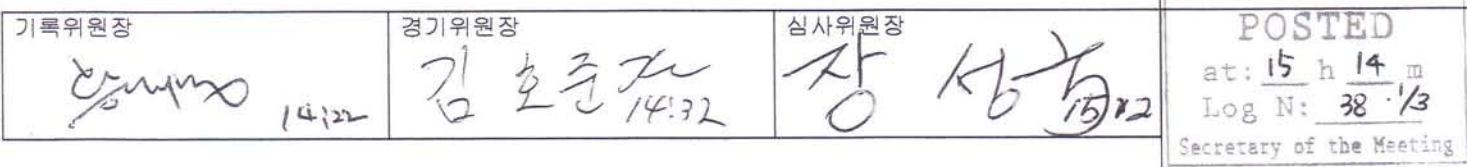 기록위원장
14:22
경기위원장
김호준
14:32
심사위원장
장 성
POSTED
at: 15 h 14 m
Log N: 38 · 1/3
Secretary of the Meeting